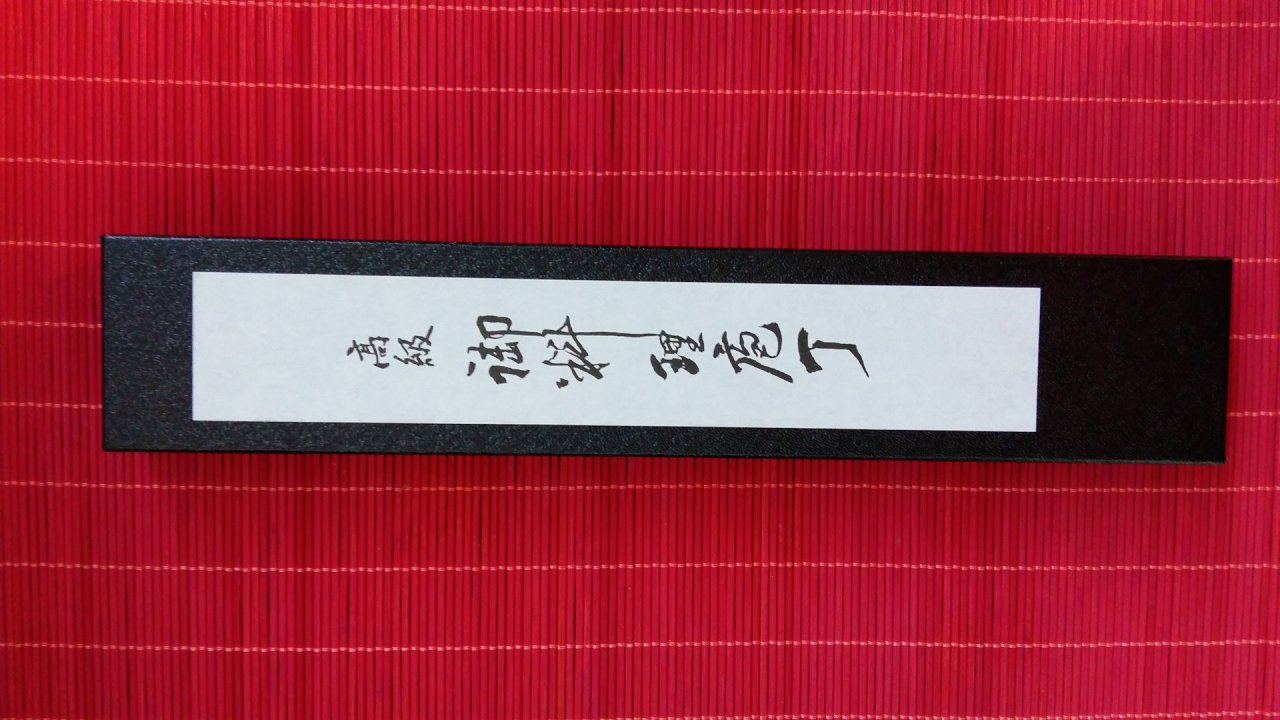 高級 御料理庖丁